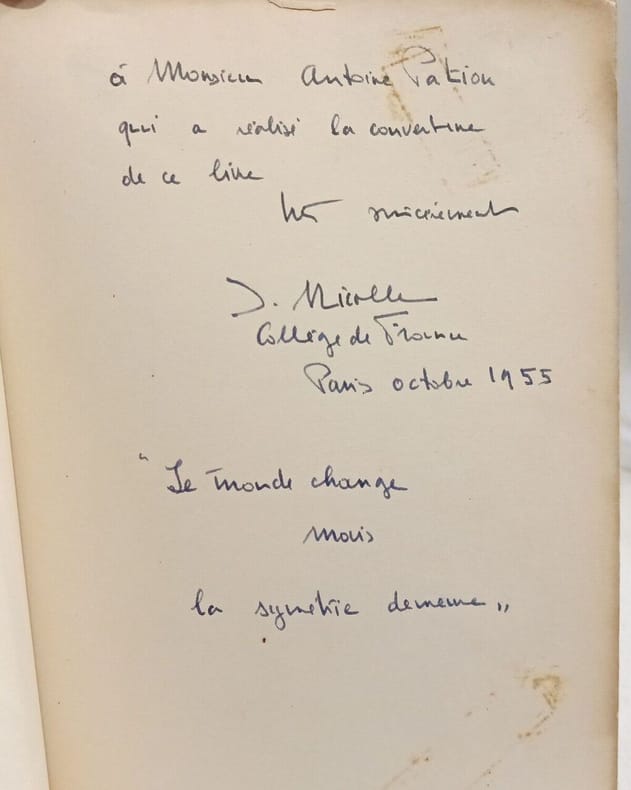 à Monsieur Antoine Pation
qui a réalisé la couverture
de ce livre
sincèrement
J. Nicolle
Collège de France
Paris octobre 1955
" Le monde change
mais
la symétrie demeure "